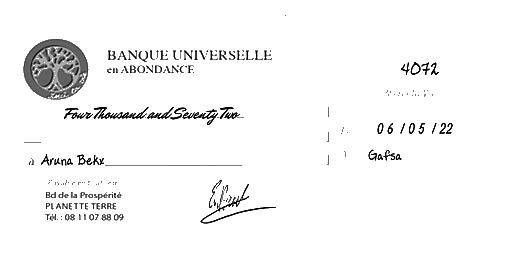 BANQUE UNIVERSELLE
en ABONDANCE
4072
Four Thousand and Seventy Two
06/05/22
à Aruna Bekx
Gafsa
Bd de la Prospérité
PLANETTE TERRE
Tél. : 08 11 07 88 09